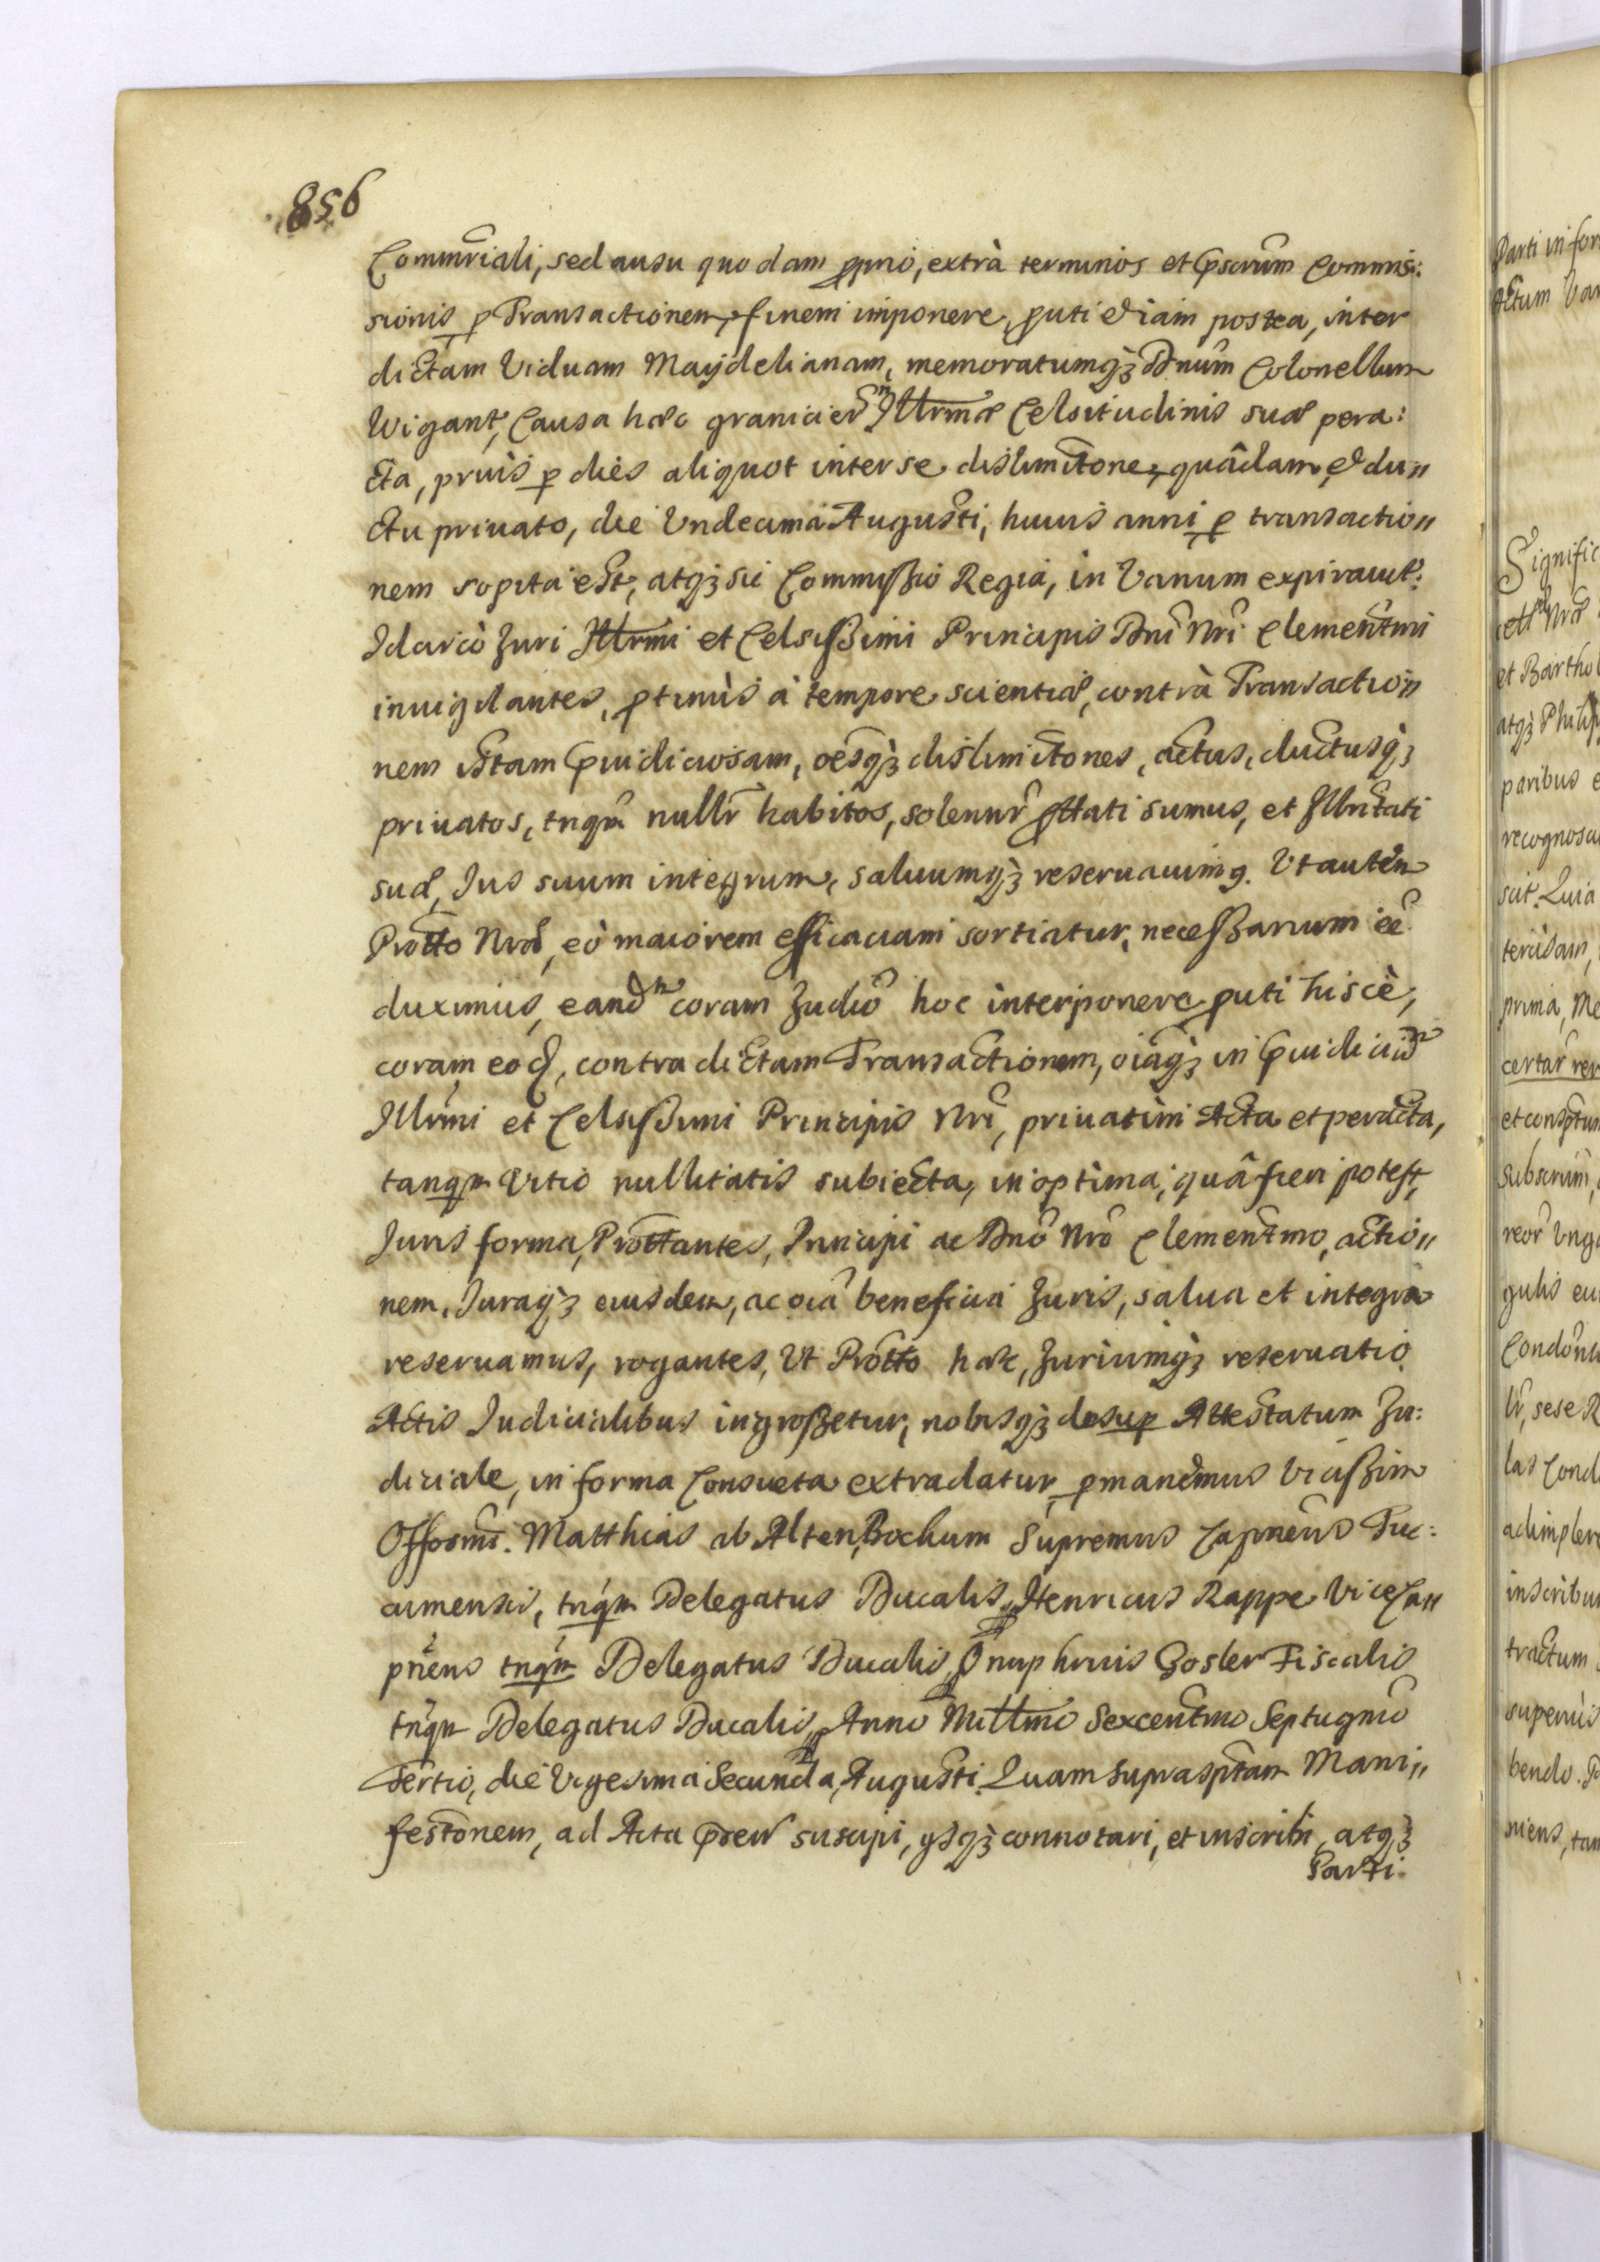 856
Commriali, sed ausu quodam pprio, extrà terminos et Pscrum Commis:
sionis p Transactionem, finem imponere, puti etiam postea, inter
dictam Viduam Maydelianam, memoratumq3 Dnum Colonellum
Wigant, Causa hæc Illrmæ Celsitudinis suæ pera:
cta, prius p dies aliquot inter se dislimitone, quâdam, et du„
ctu priuato, die Vndecima Augusti, huius anni p transactio„
nem sopita est, atq3 sic Commißio Regia, in Vanum expirauit.
Idcirco Juri Illrmi et Celsißimi Principis Dni Nri Clementmi
inuigilantes, ptinùs à tempore scientiæ, contrà Transactio„
nem istam Piudiciosam, oesq3 dislimitones, actus, ductusq3
priuatos, tnqm nullr habitos, solennr Pttati sumus, et Illritati
suæ, Jus suum integrum, saluumq3 reseruauimq. Vt autem
Protto Nra, eò maiorem efficaciam sortiatur, neceßarium eê
duximus, eandm coram Judio hoc interponere puti hisce,
coram eod, contra dictam Transactionem, oiaq3 in Piudicium
Illrmi et Celsißimi Principis Nri, priuatim Acta et peracta,
tanqm Vitio nullitatis subiecta, in optima, quâ fieri potest,
Juris forma, Prottantes, Principi ac Dno Nro Clementmo, actio„
nem, Juraq3 eiusdem, ac oia beneficia Juris, salua et integra
reseruamus, rogantes, Vt Protto hæc, Juriumq3 reseruatio
Actis Judicialibus ingroßetur, nobisq3 desup Attestatum Ju:
diciale, in forma Consueta extradatur, pmanemus Vicißim
Offosmi. Matthias ab Alten, Bockum Supremus Capneus Tuc:
cumensis, tnqm Delegatus Ducalis, Henricus Rappe ViceCa„
pneus tnqm Delegatus Ducalis, Onuphrius Gosler Fiscalis
tnqm Delegatus Ducalis, Anno Millmo Sexcentmo Septugmo
Tertio, die Vigesima Secunda, Augusti. Quam suprasptam Mani„
festonem, ad Acta suscipi, ijsq3 connotari, et inscribi, atq3
Parti.